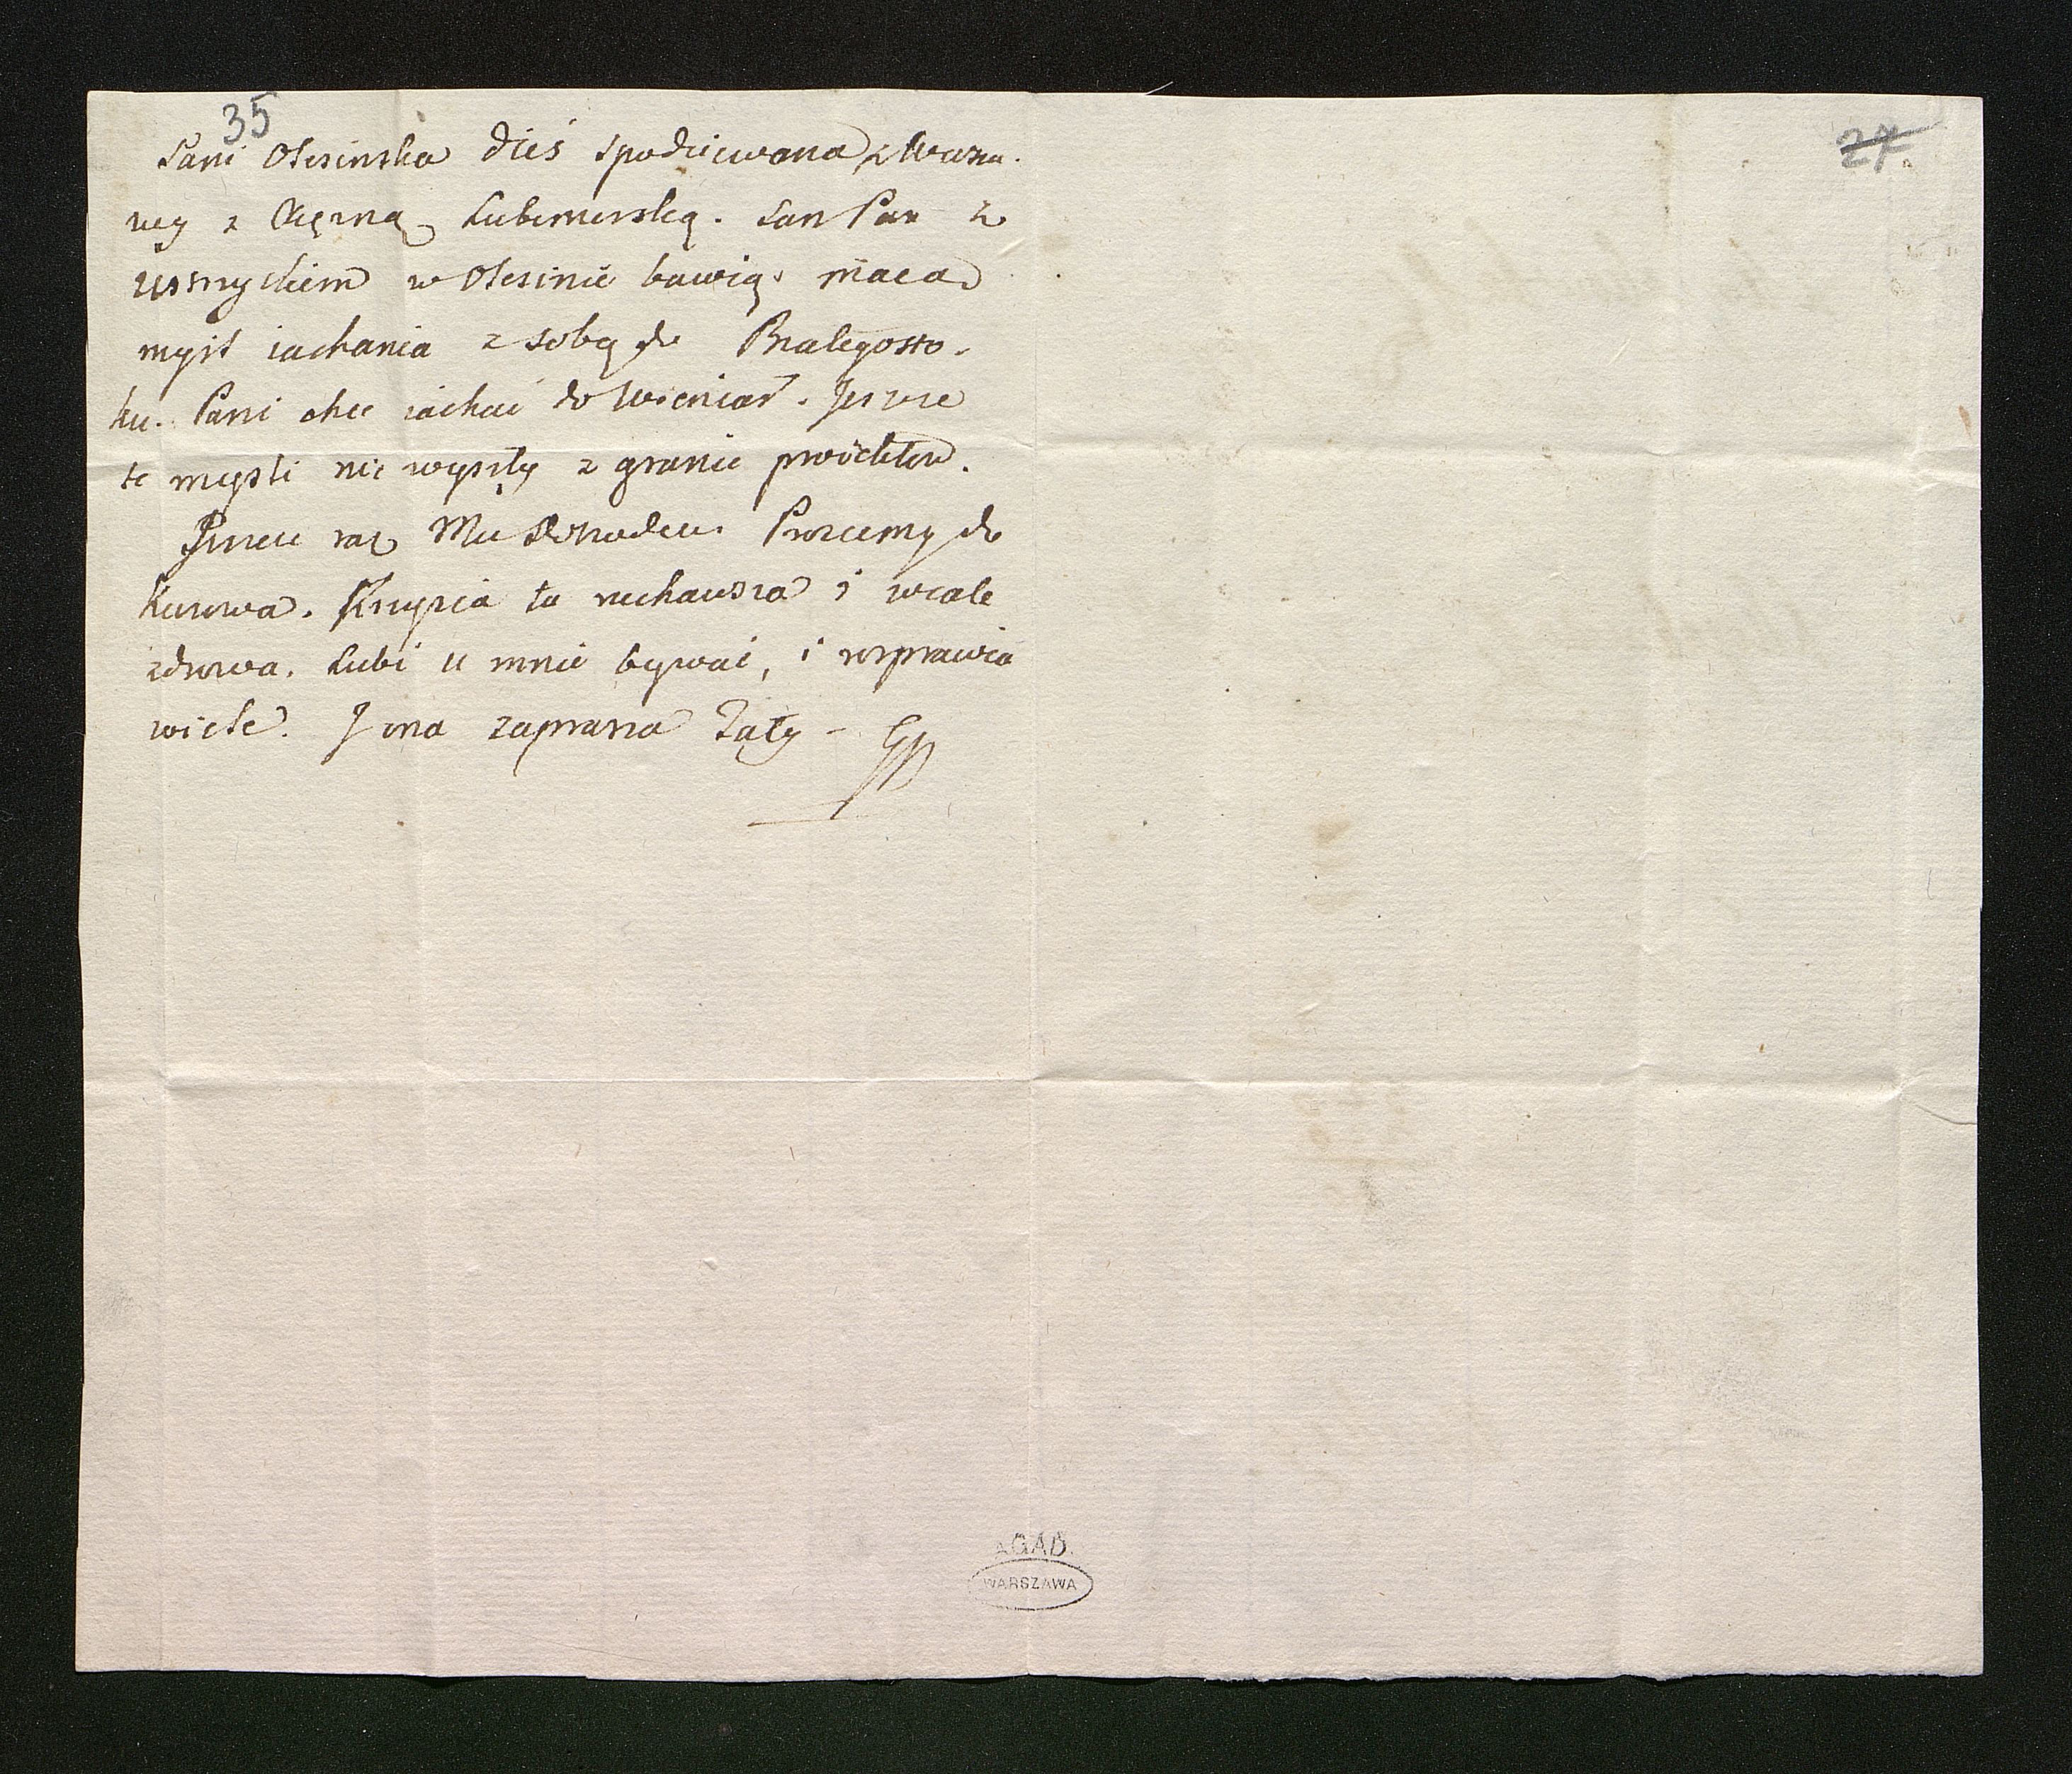 35
27.
Pani Olesinska dzis spodziewana z Warsza
wy z Xiężną Lubomirską. Sam Pan z
w Olesinie bawią. maia
mysl iachania z sobą do Bialegosto-
ku. Pani chce iachać do Jeszcze
te mysli nie wyszły z granic proiektow.
Jeszcze raz Prosiemy do
Kurowa. Krysia ta i wcale
zdrowa. Lubi u mnie bywać, i rosprawia
wiele. J ona zaprasza Taty -
AGAD.
WARSZAWA